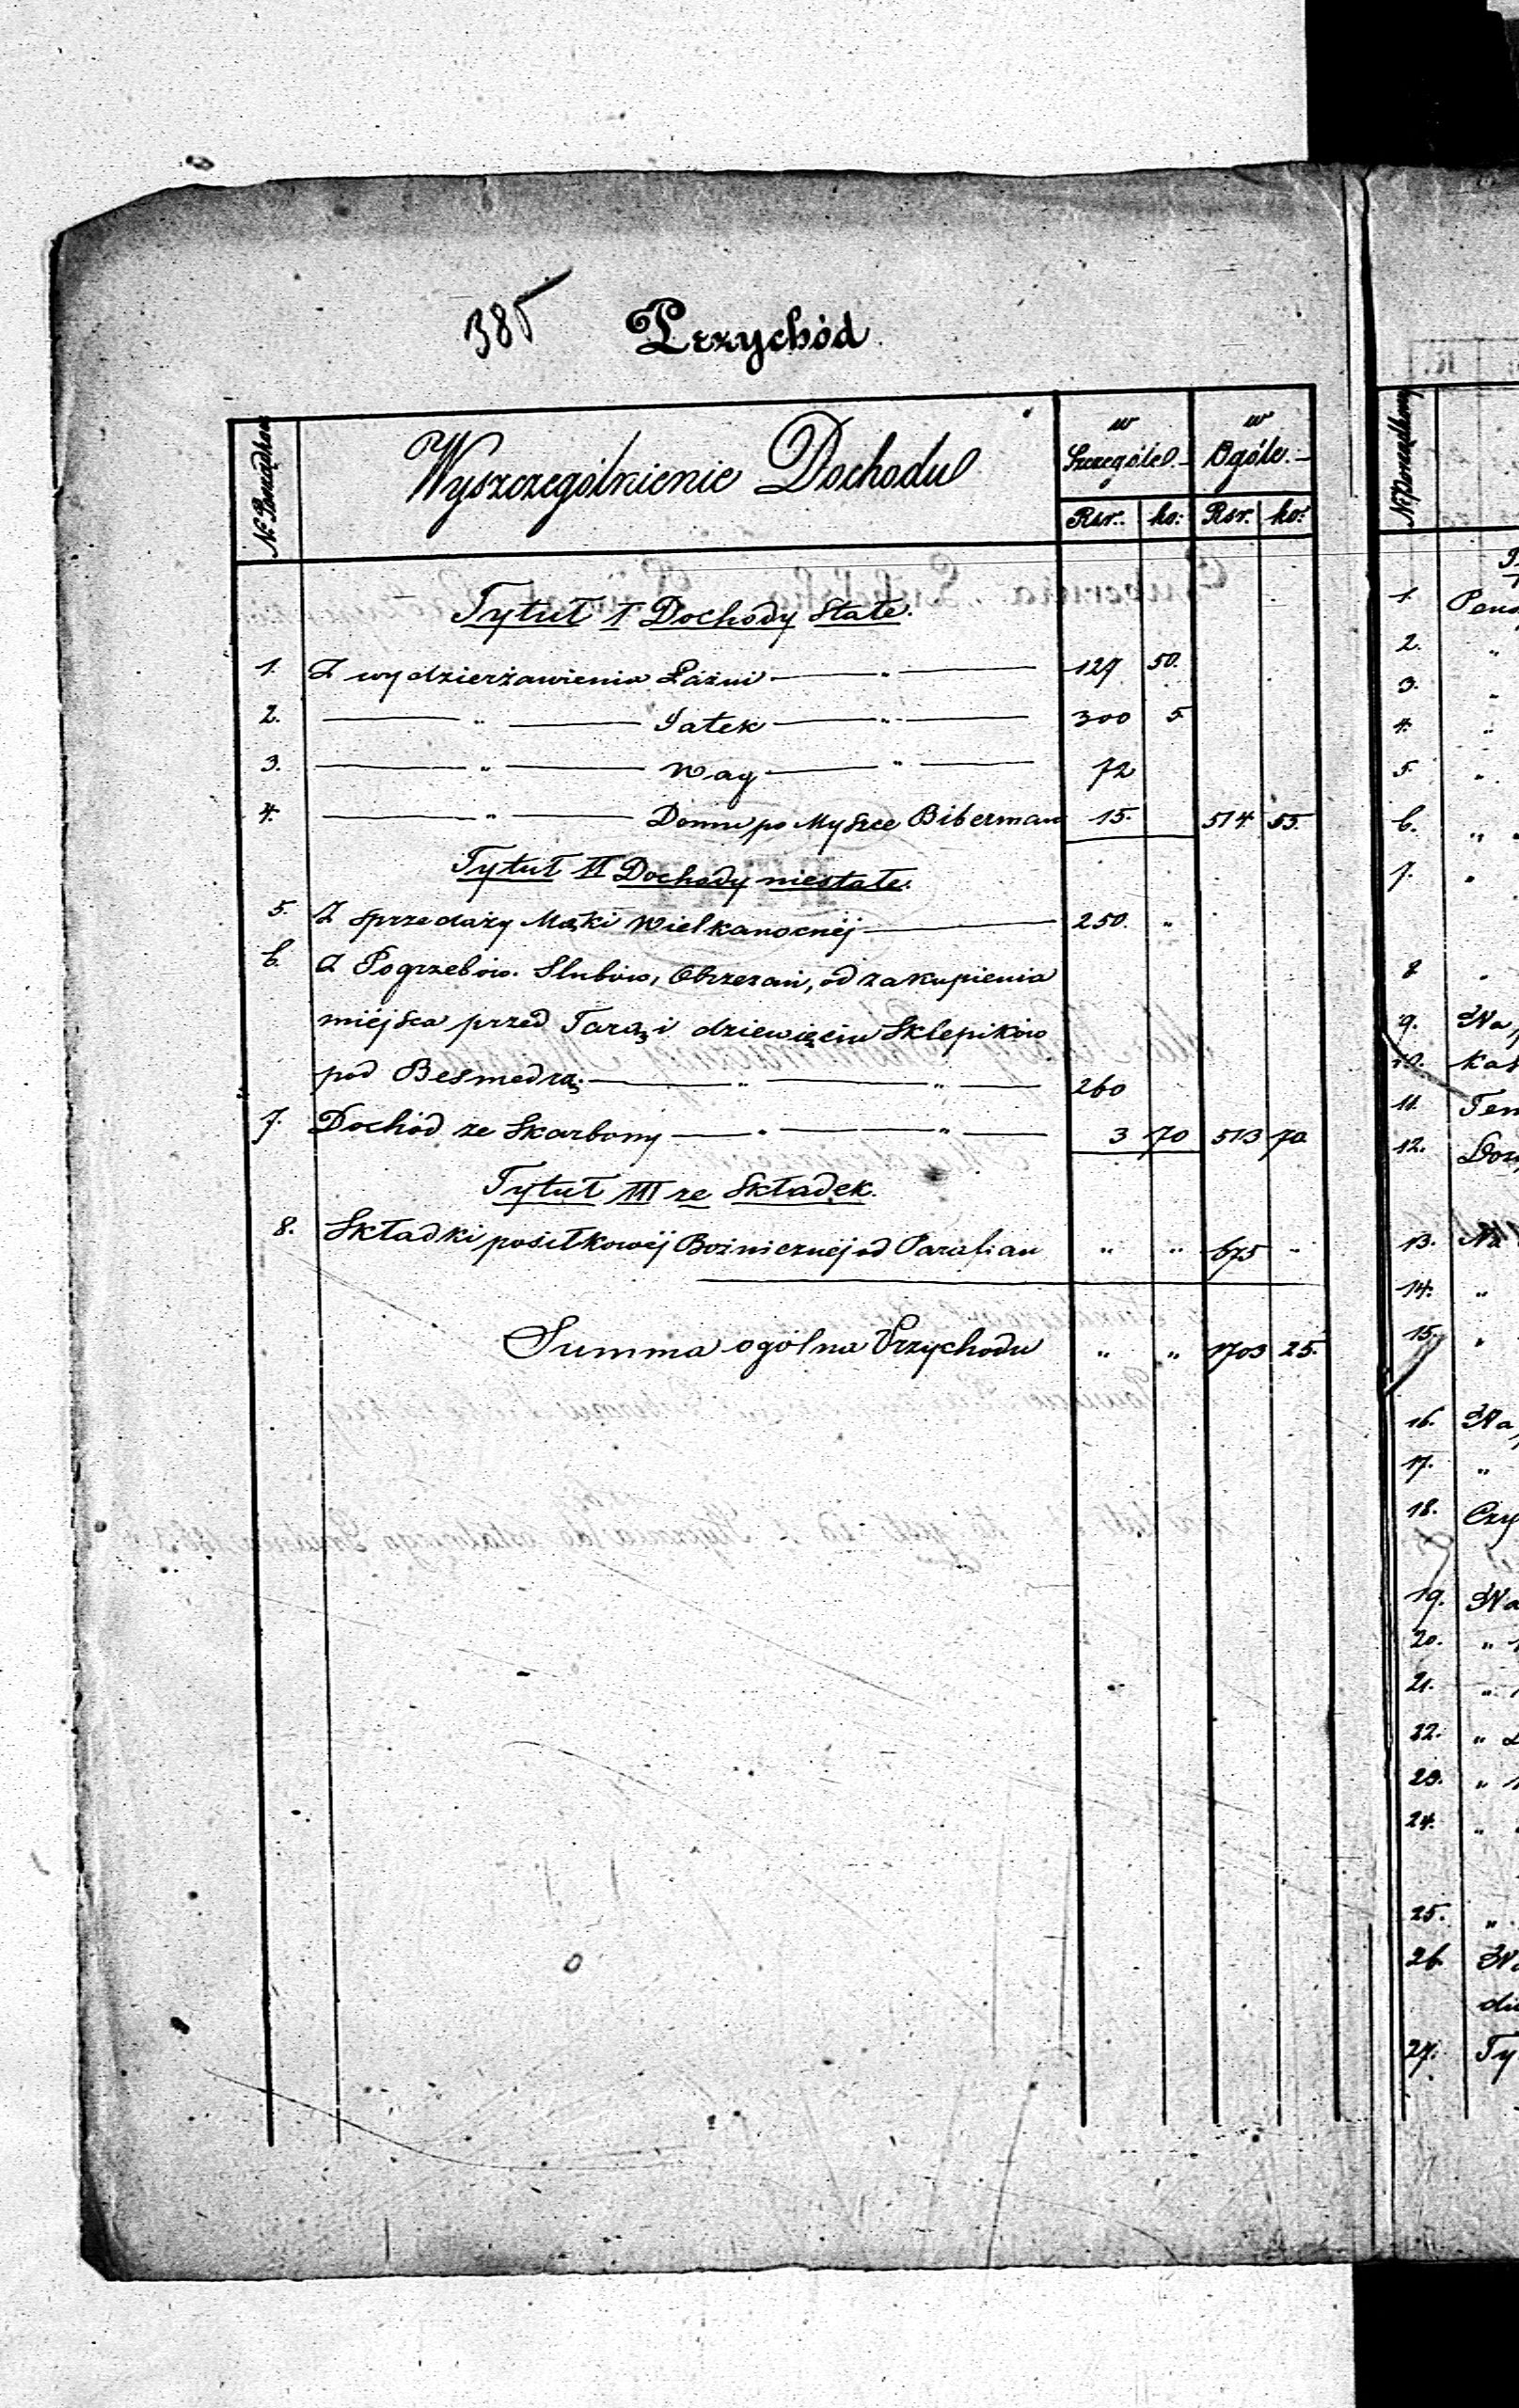 385 Przychód
Nr Porządkow
Wyszczególnienie Dochodu
w Szczególe
w Ogóle
Rsr. ko: Rsr. ko:
Tytuł I Dochody Stałe.
1. Z wydzierżawienia Łaźni — " — 127 50.
2. — " — Jatek — " — 300 5
3. — " — Wag — " — 72
4. — " — Domu po Myszce Biberman 15. 514 55.
Tytuł II Dochody niestałe.
5. Z sprzedaży Mąki Wielkanocnéj — 250. "
6. Z Pogrzebów. Slubów, Obrzezań, od zakupienia
miéjsca przed Torą, i dziewięciu Sklepików
pod Besmedrą. — " — " — 260
7. Dochód ze Skarbony — " — " — 3 70 513 70
Tytuł III ze Składek.
8. Składki posiłkowéj Bożnicznéj od Parafian " " 675 "
Summa ogólna Przychodu " " 1703 25.
Nr Porządkowy
1.
2. "
3. "
4. "
5. "
6. " "
7. "
8 "
9. Na
10.
11.
12.
13. Na
14. "
15. "
16. Na
17. "
18.
19. Na
20. "
21. "
22. "
23. "
24. "
25. "
26.
27.